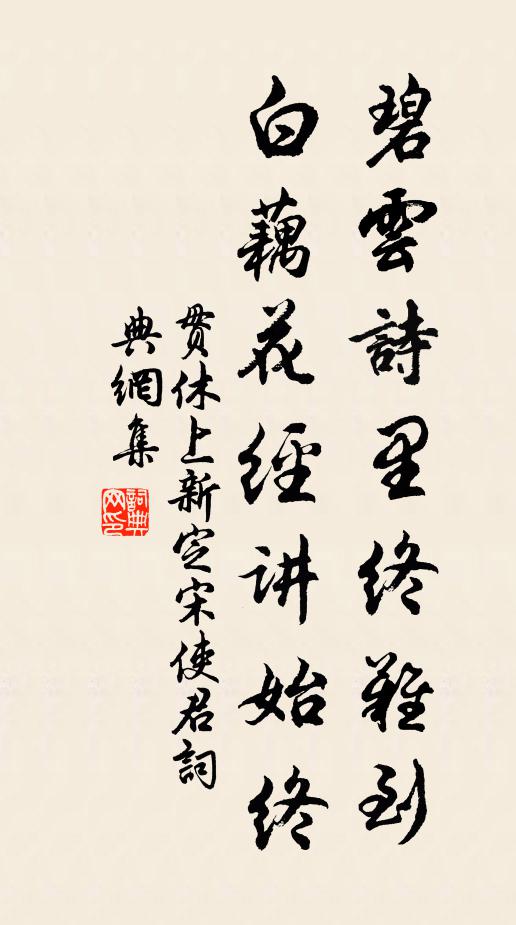 碧雲詩里終難到
白藕花經讲始終
貫休上新定宋使君詞
典網集
詞典網印